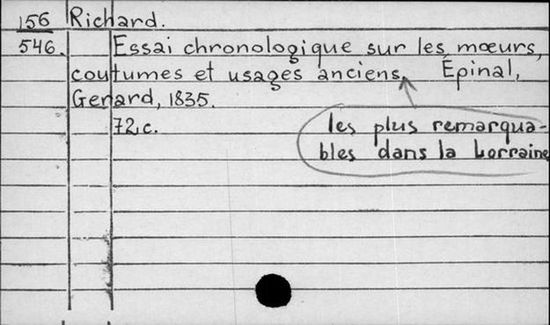 156 Richard.
546. Essai chronologique sur les mœurs,
coutumes et usages anciens, Épinal,
Gerard, 1835.
72 c.
les plus remarqua-
bles dans la Lorraine